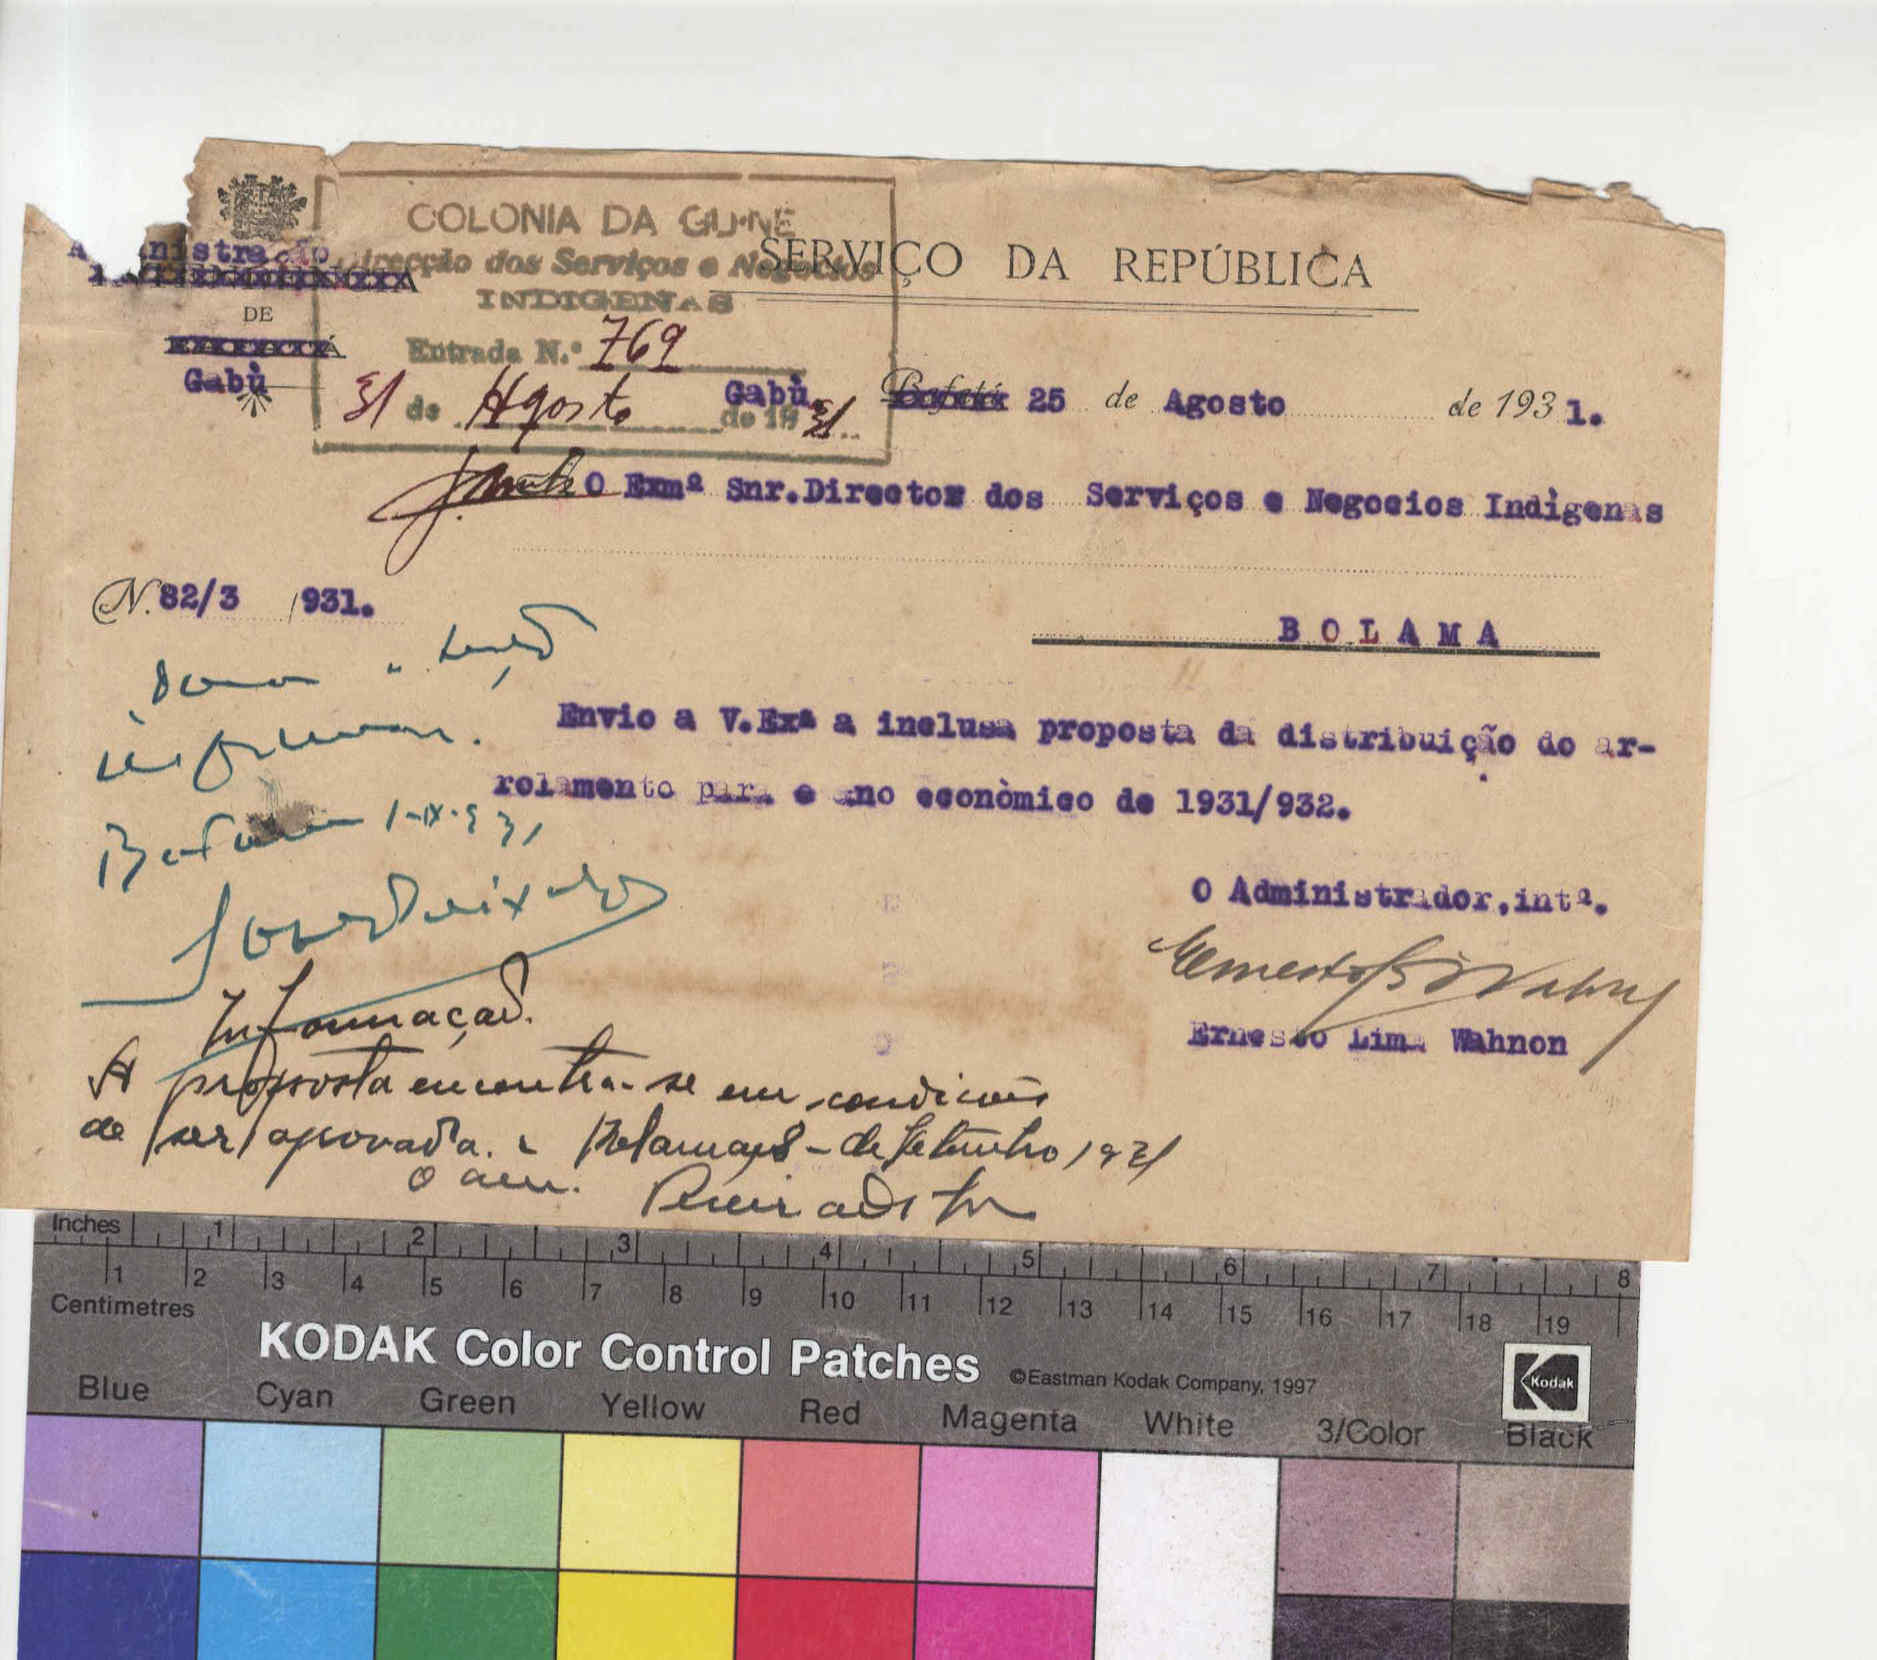 SERVIÇO DA REPÚBLICA
COLONIA DA GUINÉ
Direcção dos Serviços e Negocios
INDIGENAS
Entrada N.º 769
31 de Agosto de 1931
Administração
DE
Gabù
Gabù, 25 de Agosto de 1931.
O Exmº Snr.Director dos Serviços e Negocios Indìgenas
N. 82/3 /931.
BOLAMA
informar.
Bolama 1-IX-931
Envio a V.Exª a inclusa proposta da distribuição do ar-
rolamento para o ano econòmico de 1931/932.
O Administrador,intº.
Ernesto Lima Wahnon
Informação.
A proposta encontra-se em condicões
de ser aprovada. Bolama, 8-de Setembro 1931
Inches 1 2 3 4 5 6 7 8
1 2 3 4 5 6 7 8 9 10 11 12 13 14 15 16 17 18 19
Centimetres
KODAK Color Control Patches ©Eastman Kodak Company, 1997
Kodak
Blue Cyan Green Yellow Red Magenta White 3/Color Black